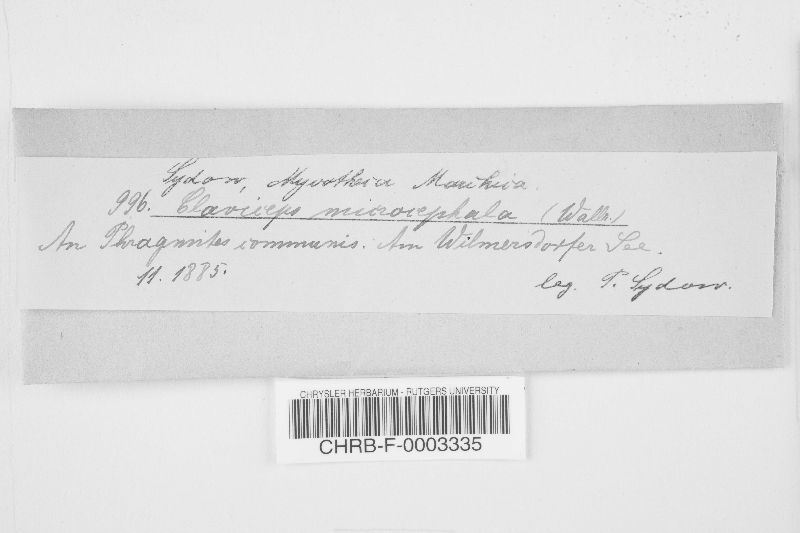 Sydow, Mycotheca Marchica.
996. Claviceps microcephala (Wallr.)
An Phragmites communis. Am Wilmersdorfer See.
11. 1885.
leg. P. Sydow.
CHRYSLER HERBARIUM - RUTGERS UNIVERSITY
CHRB-F-0003335